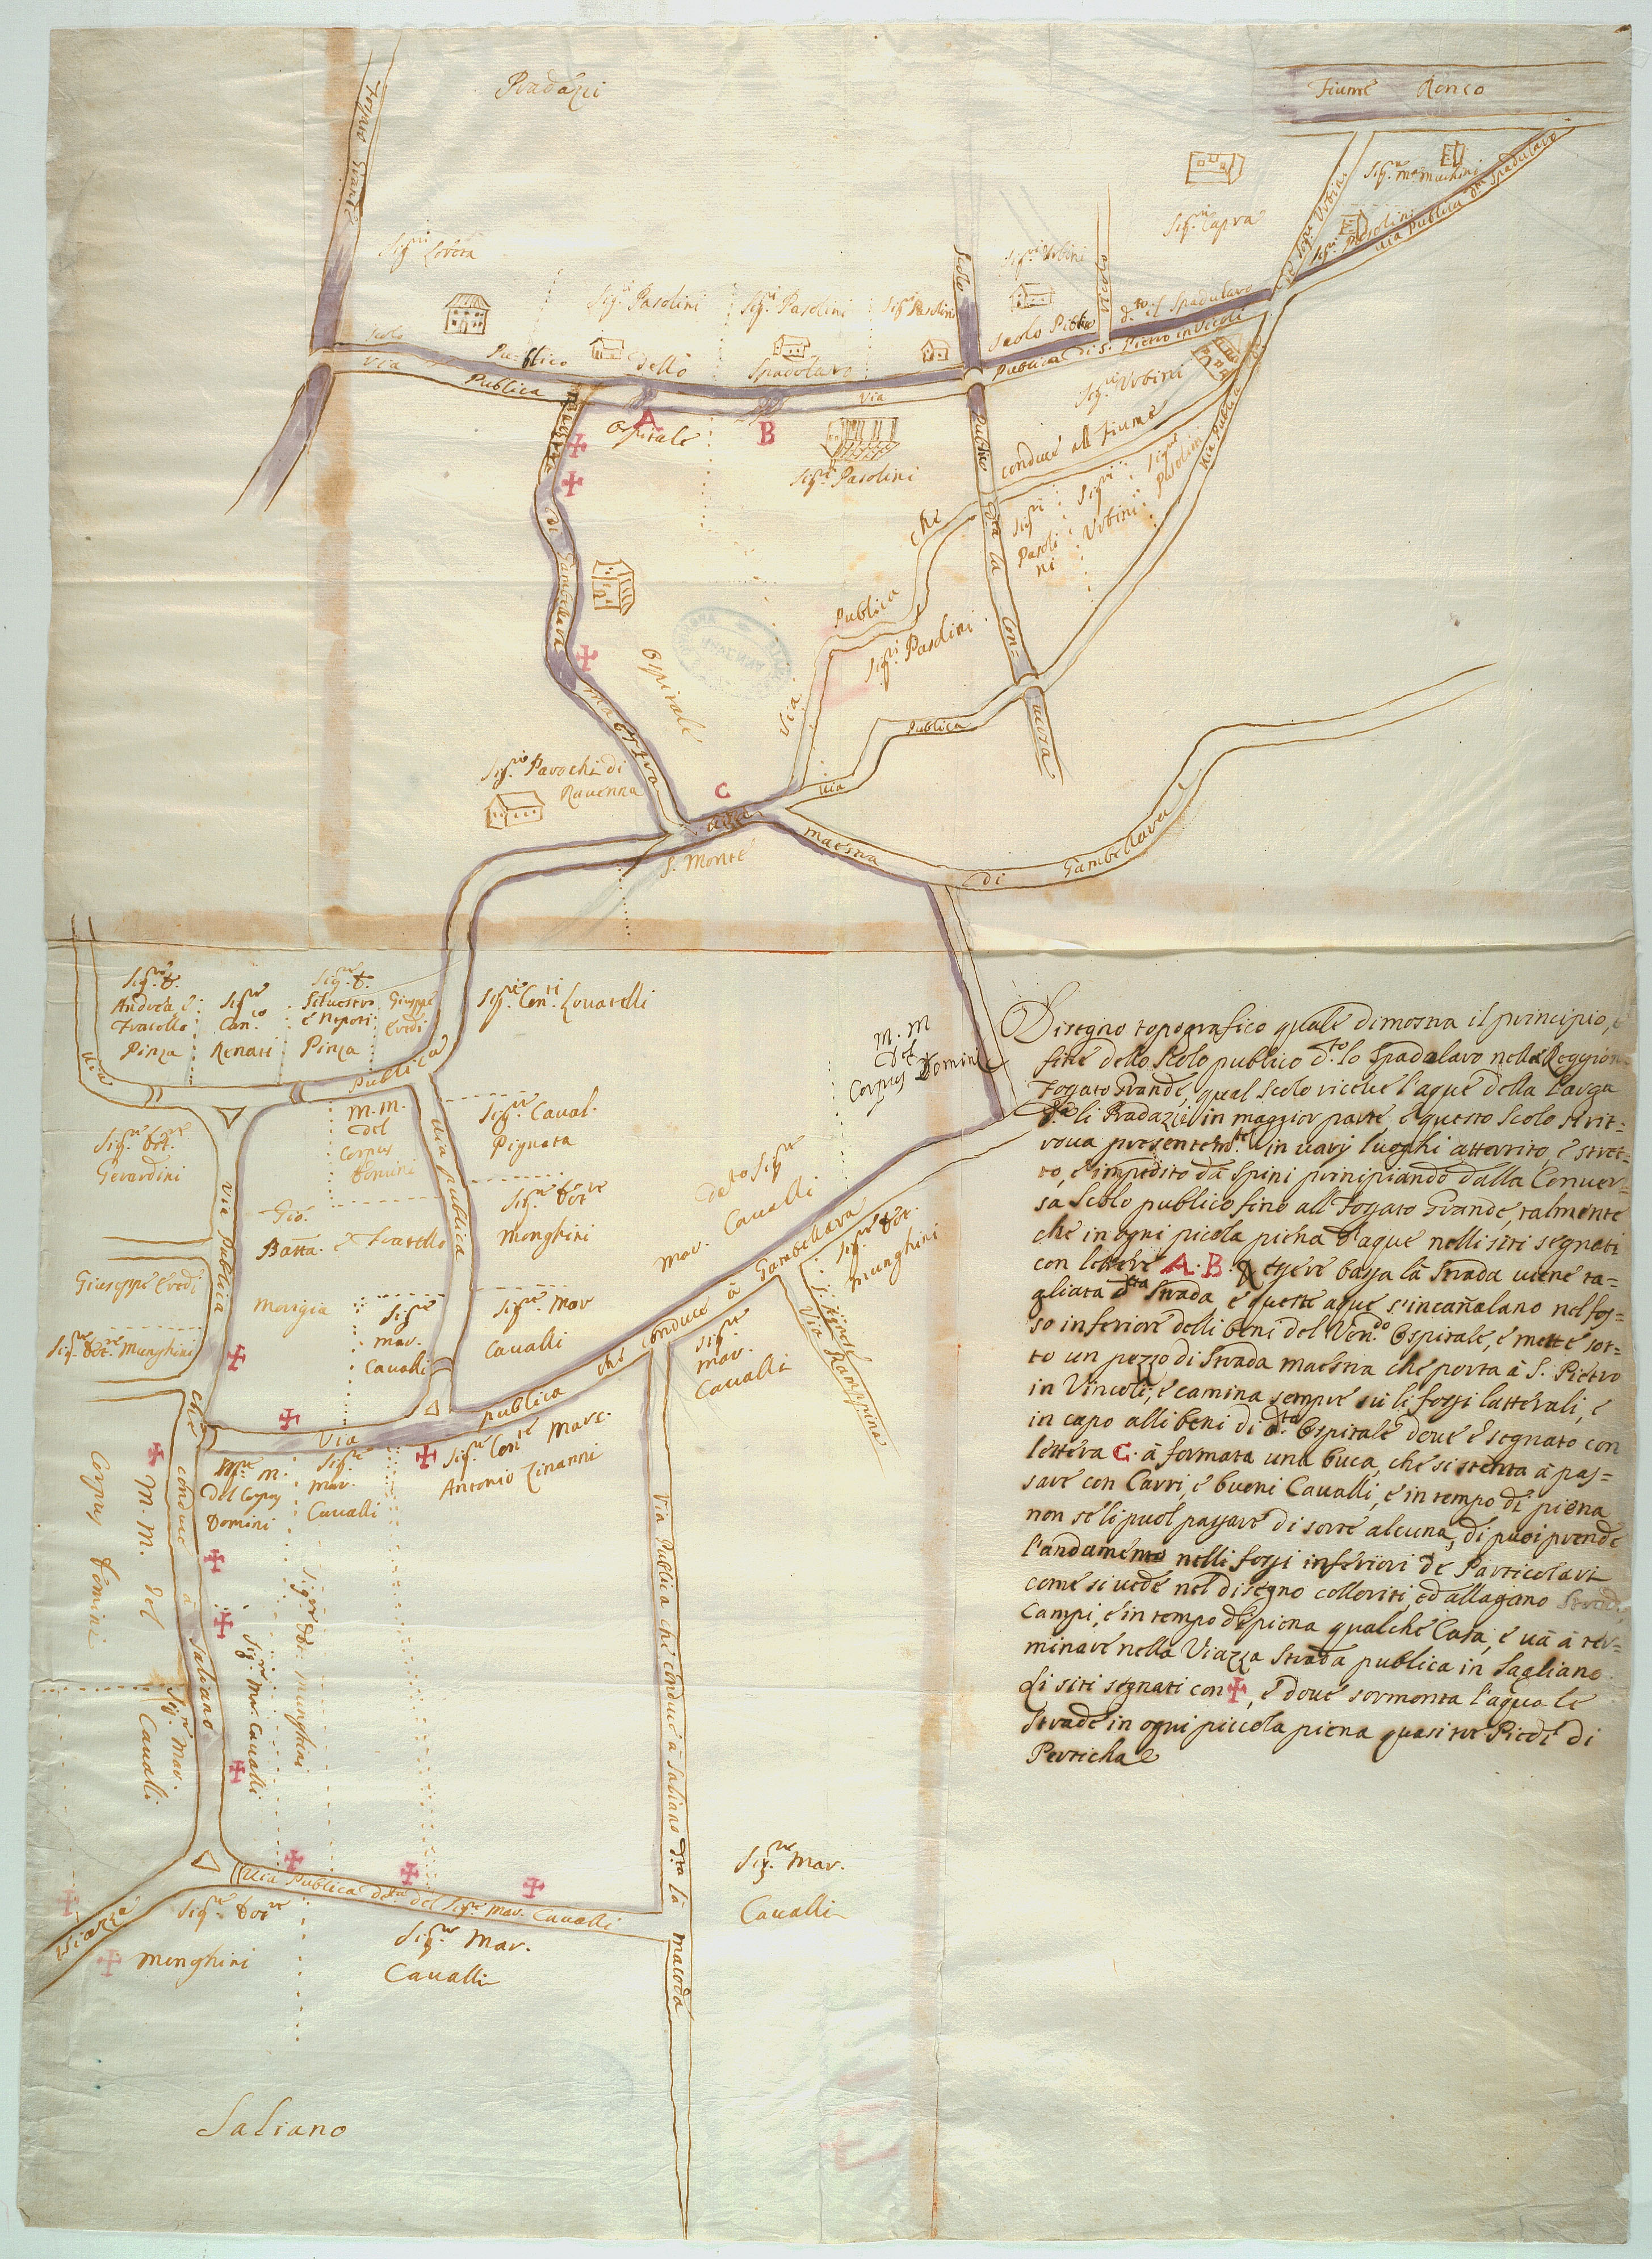 Pradazzi
Fiume Ronco
Fossato Grande
Sig.ri Lovera
Sig.ri Capra
Sig.ra M.a Muchini
Sig.ri Pasolini
Via Publica d.ta Spadulara
Sig.ri Urbini
Sig.ri Pasolini
Sig.ri Pasolini
Sig.ri Pasolini
Scolo
Scolo Publico dello Spadolaro
Scolo Pub.co d.to il Spadularo
Via Publica
Via
Publica di S. Pietro in Vincoli
A
B
Ospitale
Sig.ri Pasolini
Sig.ri Urbini
che conduce all Fiume
Via Publica
Sig.ri
Pasoli
ni
Sig.ri
Urbini
Sig.ri
Pasolini
Publico d.ta la Con=
versa
di Gambellara
Maestra
Ospitale
Via Publica
Sig.ri Pasolini
Via Publica
Sig.ri Parochi di
Ravenna
C
S. Monte
Via
maestra
di Gambellara
Sig.ri D.
Andrea è
Fratello
Pinza
Sig.re
Can.co
Renati
Sig.re D.
Silvestro
è Nipoti
Pinza
Giuseppe
Eredi
Sig.re Con.ti Lovatelli
Via
Publica
M. M
del
Corpus Domini
M. M.
del
Corpus
Domini
Sig.re Caval.
Pignata
Sig.re Dot.re
Gerardini
Via Publica
Via publica
Sig.re Dot.re
Menghini
Gio.
Batta. è Fratello
Merigia
Giuseppe Eredi
Sig.re Dot.re Munghini
Sig.re
mar.
Cavalli
Sig.re Mar
Cavalli
Sig.re
Mar. Cavalli
Sig.re Dot.
Munghini
Via Rampina
Sig.re
mar.
Cavalli
Via publica che conduce à Gambellara
Sig.re Con.te Marc.
Antonio Zinanni
M. M.
del Corpus
Domini
Sig.re
Mar.
Cavalli
M. M. del
Corpus Domini
che conduce a Saliano
Sig.re Mar.
Cavalli
Sig.re Mar. Cavalli
Sig.re Dot. Munghini
Via Publica che conduce à Saliano d.ta la Macoda
Via Publica detta del Sig.re Mar. Cavalli
Viazza
Sig.re Dot.re
Menghini
Sig.re Mar.
Cavalli
Sig.re Mar.
Cavalli
Saliano
Disegno topografico quale dimostra il principio, è
fine dello Scolo publico d.to lo Spadalaro nella Reggion
Fossato Grande, qual Scolo riceve l'aque della Larga
d.a li Pradazzi in maggior parte, è questo Scolo si rit=
rova presentem.te in varij luoghi atterrito, è stret=
to, è impedito da Spini principiando dalla Conver=
sa Scolo publico fino all Fossato Grande, talmente
che in ogni picola piena d'aque nelli siti segnati
con lettere A. B. p essere bassa la Strada viene ta=
gliata d.ta Strada è queste aque s'incanalano nel fos=
so inferiore delli beni del Ven.do Ospitale, è mette sot=
to un pezzo di Strada maestra che porta à S. Pietro
in Vincoli, è camina sempre su li fossi latterali, è
in capo alli beni di d.to Ospitale dove è segnato con
lettera C. à formata una buca, che si stenta à pas=
sare con Carri, è buoni Cavalli, è in tempo di piena
non se li puol passare di sorte alcuna, di puoi prende
l'andamento nelli fossi inferiori de Particolari
come si vede nel disegno colloriti, ed allagano Strade
Campi, è in tempo di piena qualche Casa, è và à ter=
minare nella Viazza Strada publica in Sagliano.
Li siti segnati con ✠, è dove sormonta l'aqua le
Strade in ogni piccola piena quasi tre Piedi di
Perticha